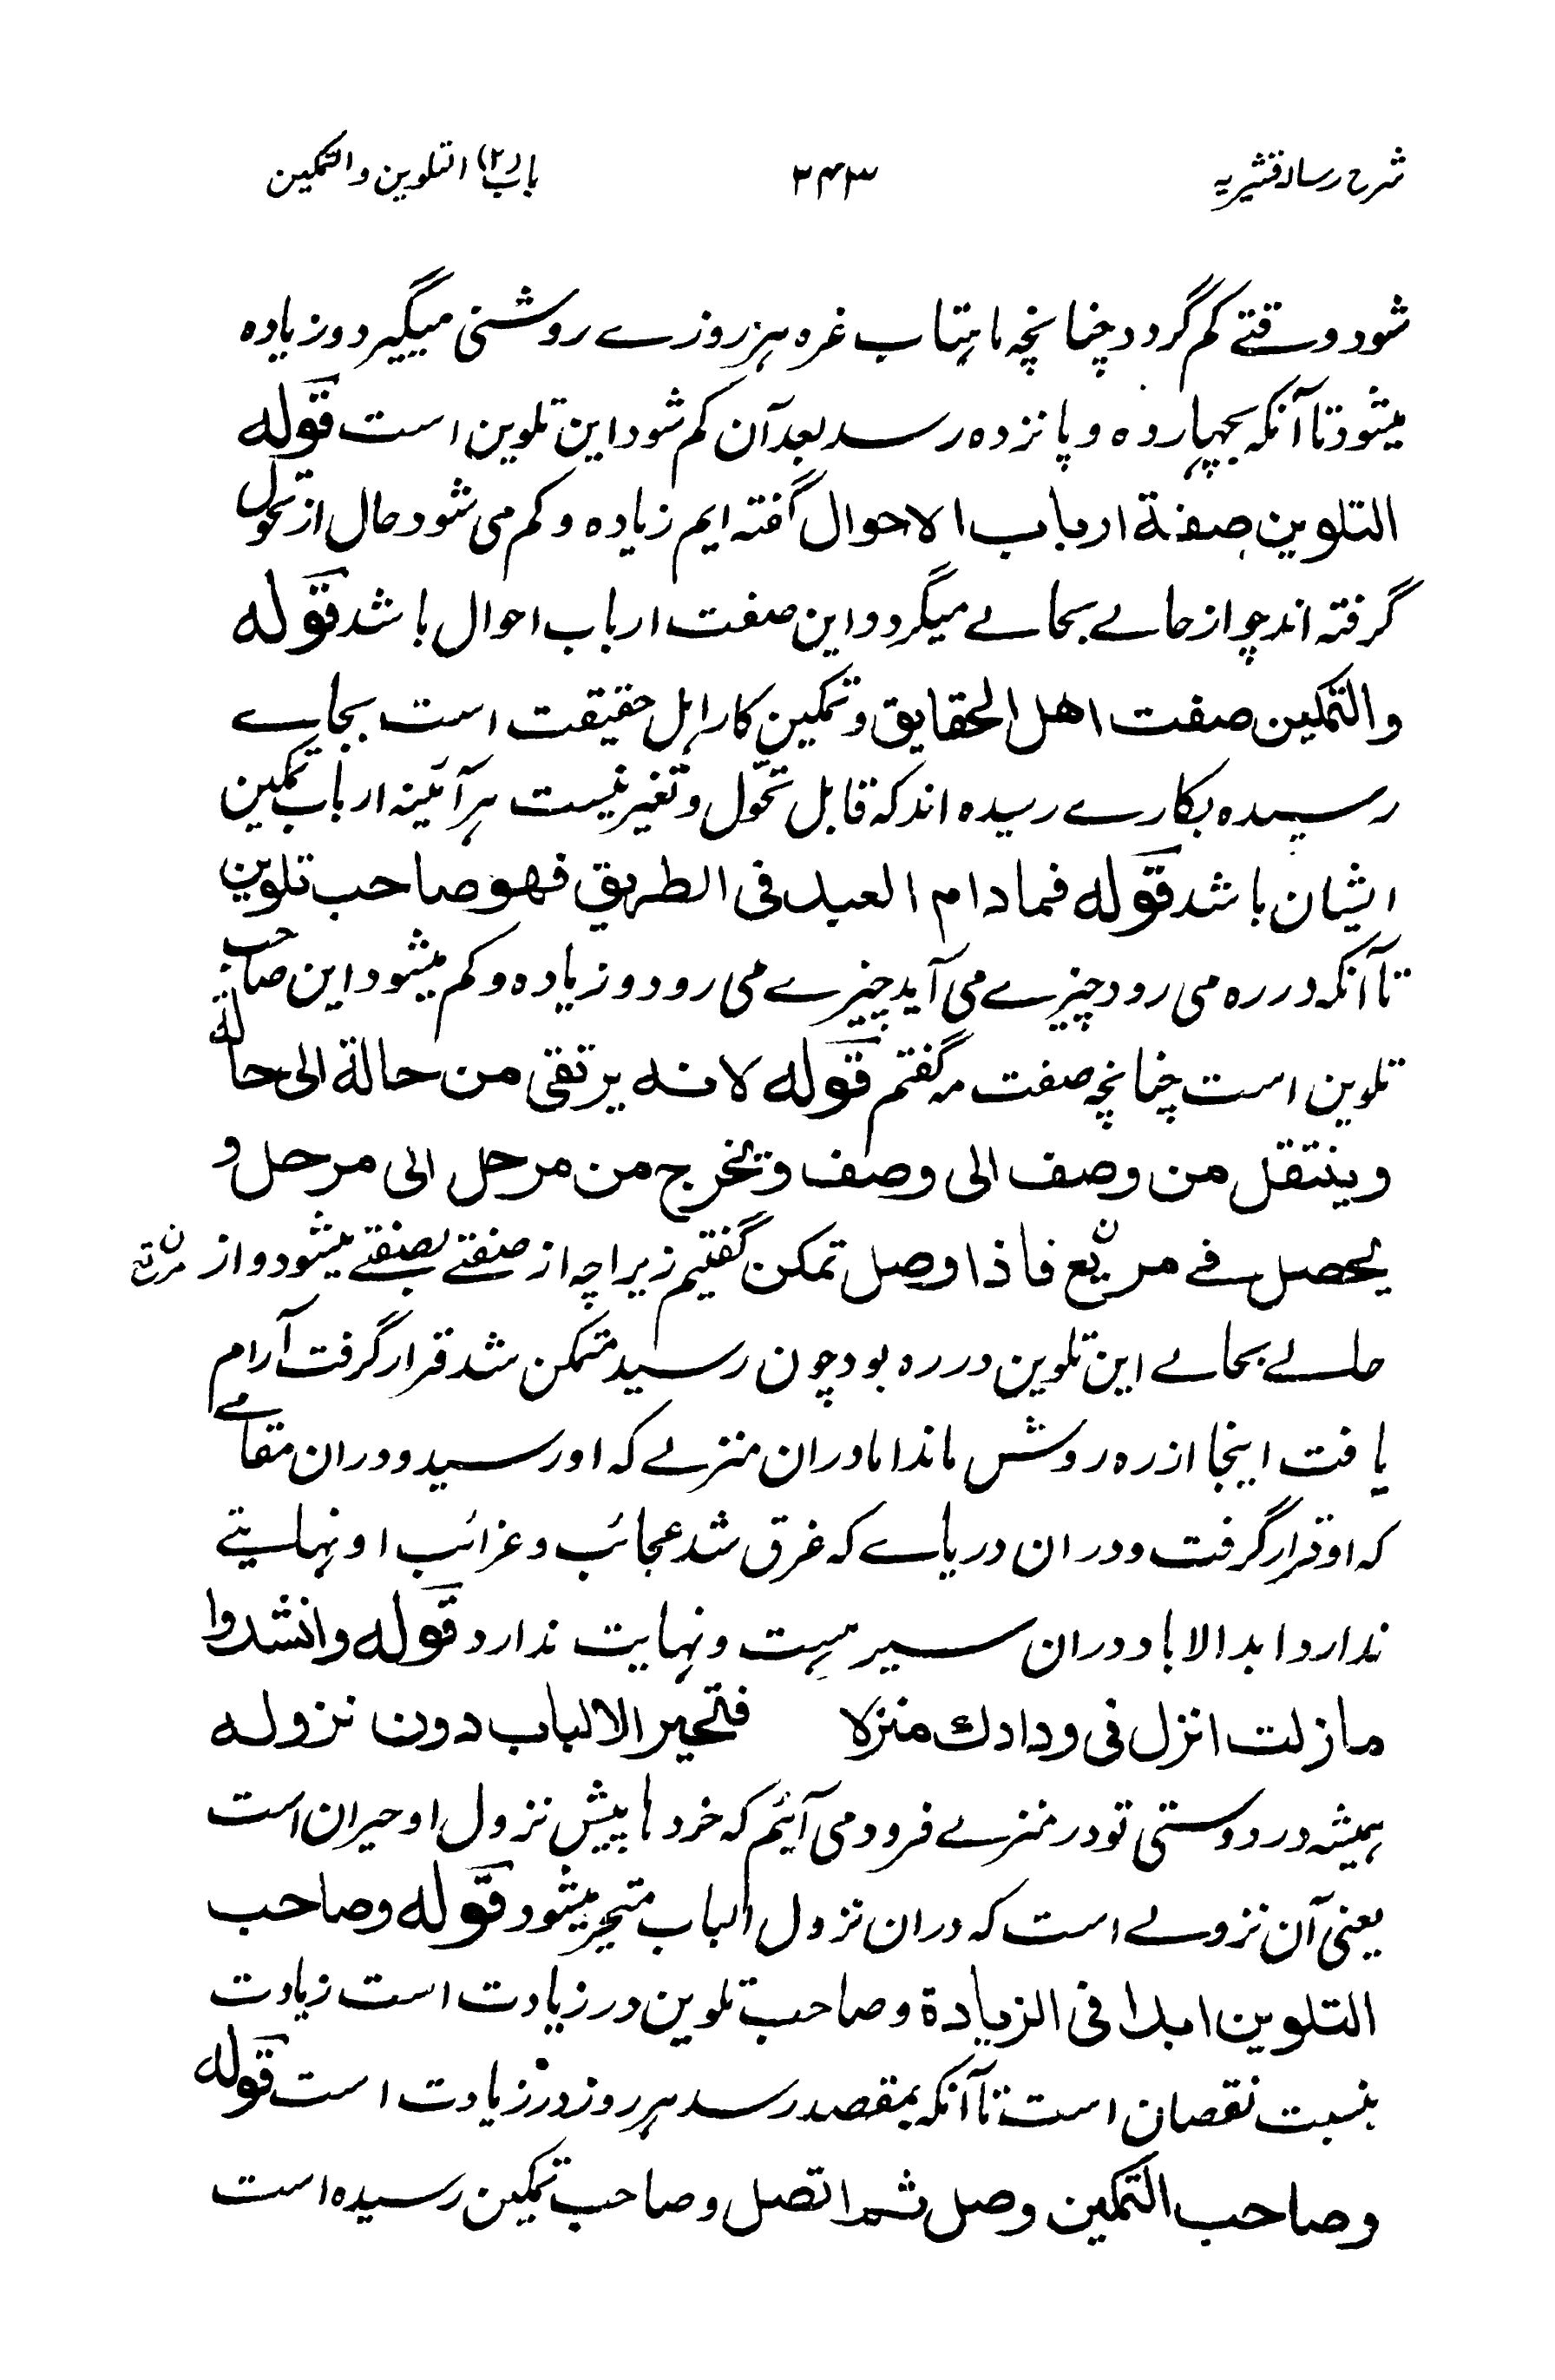 شرح رسالہ قشیریہ ۳۴۳ باب (۲) التلوین والتمکین
شود وقتے کم گردد چنانچہ ماہتاب غرہ ہر روزے روشنی میگیرد و زیادہ
میشود تا آنکہ بچہاردہ و پانزدہ رسد بعد آن کم شود این تلوین است قولہ
التلوین صفۃ ارباب الاحوال گفتہ ایم زیادہ و کم می شود حال از تحول
گرفتہ اند چو از حالے بحالے میگردد این صفت ارباب احوال باشد قولہ
والتمکین صفت اھل الحقایق و تمکین کار اہل حقیقت است بجاے
رسیدہ بکارے رسیدہ اند کہ قابل تحّول و تغیر نیست ہر آئینہ ارباب تمکین
ایشان باشد قولہ فمادام العبد فی الطریق فھو صاحب تلوین
تا آنکہ در رہ می رود چیزے می آید چیزے می رود و زیادہ و کم میشود این صاحب
تلوین است چنانچہ صفت مہ گفتم قولہ لانہ یرتقی من حالۃ الی حالۃ
وینتقل من وصف الی وصف ویخرج من مرحل الی مرحل و
یحصل فے مربع فاذا وصل تمکن گفتیم زیراچہ از صفتے بصفتے میشود و از
حالے بحالے این تلوین در رہ بود چون رسید متمکن شد قرار گرفت آرام
یافت اینجا از رہ روش ماند اما دران منزلے کہ او رسید و دران مقامے
کہ او قرار گرفت و دران دریاے کہ غرق شد عجائب و غرائب او نہایتے
ندارد ابد الاباد دران سیر ہست و نہایت ندارد قولہ وانشدوا
مازلت انزل فی ودادك منزلا فتحیر الالباب دون نزولہ
ہمیشہ در دوستی تو در منزلے فرود می آئیم کہ خردہا پیش نزول او حیران است
یعنی آن نزولے است کہ دران نزول الباب متحیر میشود قولہ وصاحب
التلوین ابدا فی الزیادۃ و صاحب تلوین در زیادت است زیادت
بنسبت نقصان است تا آنکہ بمقصد رسد ہر روز در زیادت است قولہ
وصاحب التمکین وصل ثم اتصل و صاحب تمکین رسیدہ است